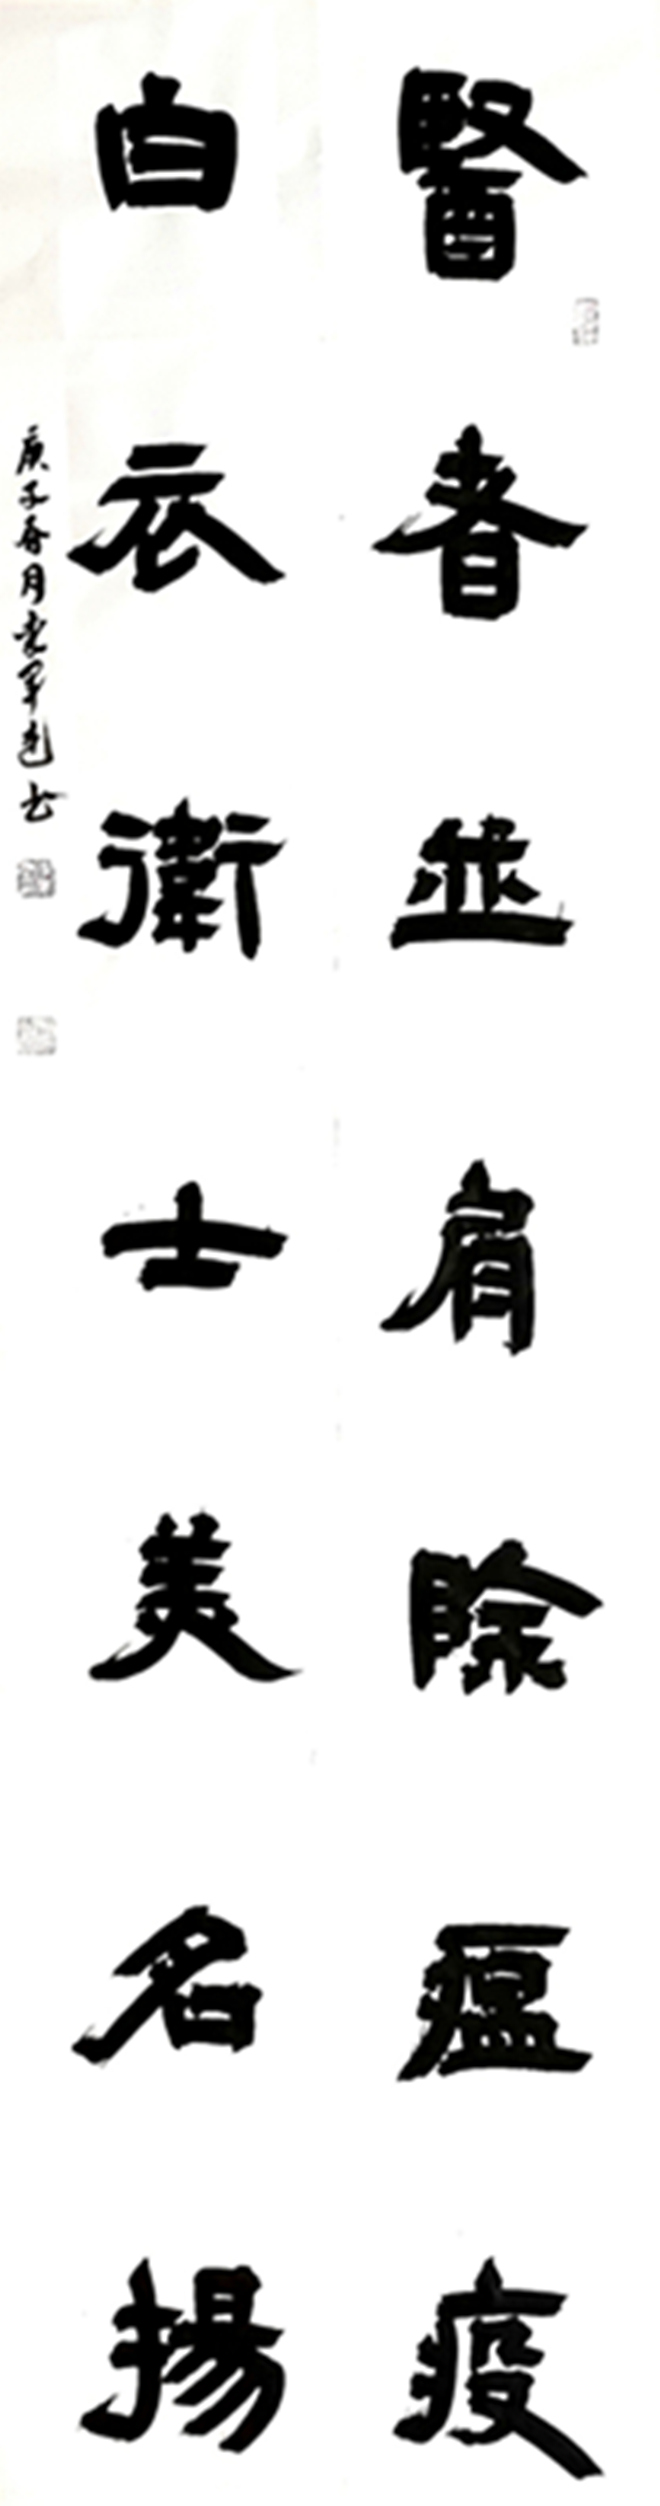 醫者並肩除瘟疫
白衣衛士美名揚
庚子春月袁军書